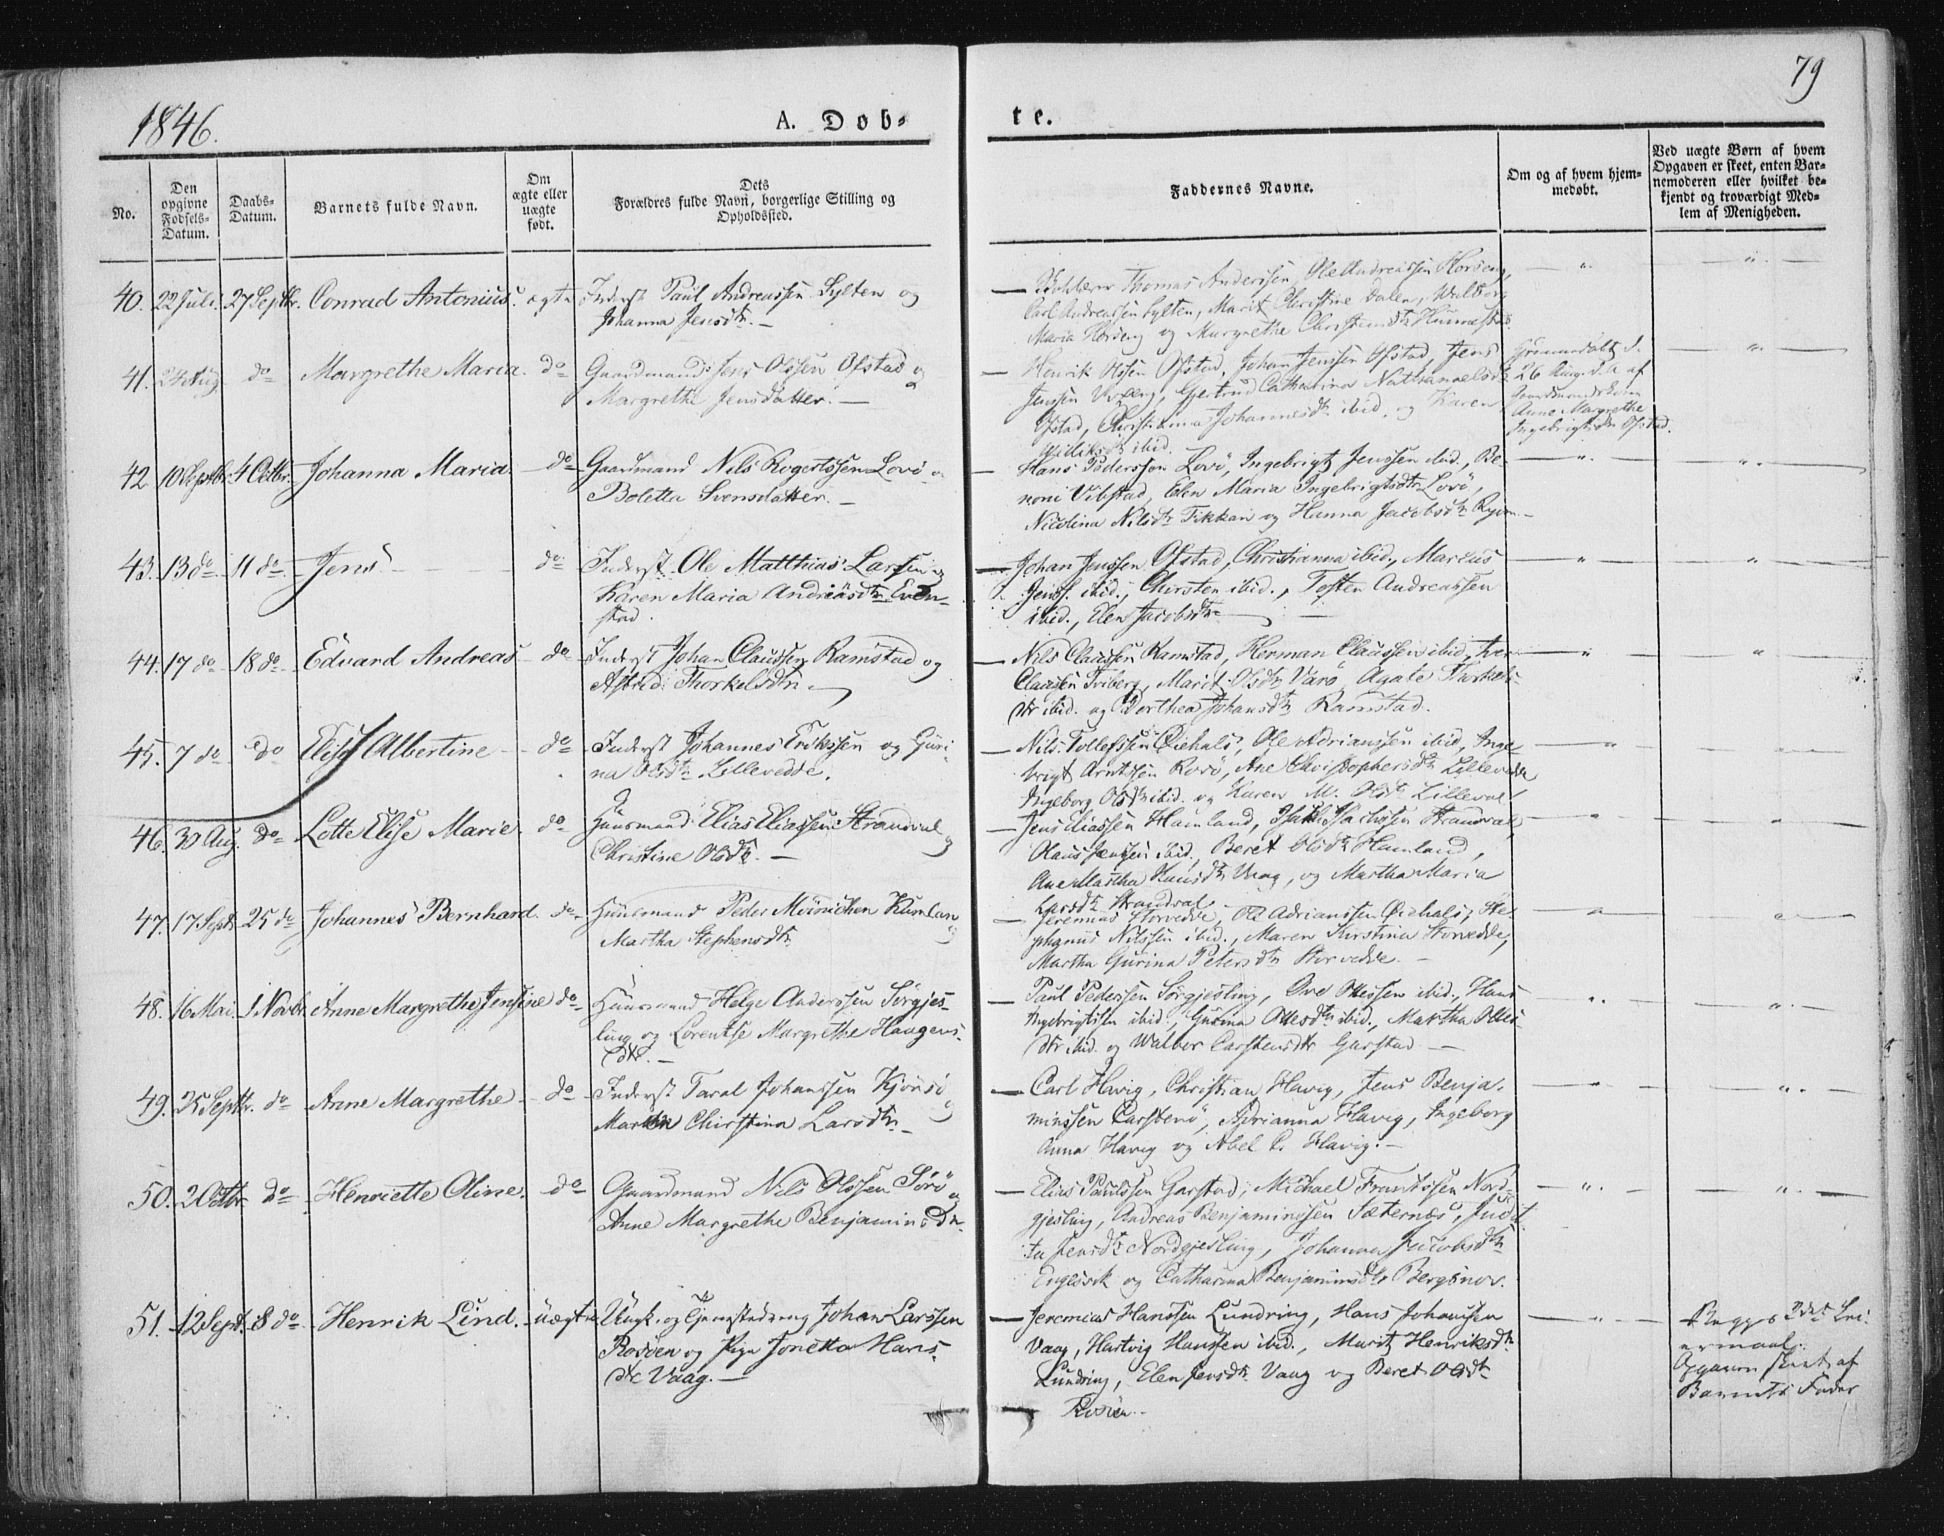 1846.
79
A. Dob-
te.
No.
Den opgivne Fødsels-Datum.
Daabs-Datum.
Barnets fulde Navn.
Om ægte eller uægte født.
Dets Forældres fulde Navn, borgerlige Stilling og Opholdssted.
Faddernes Navne.
Om og af hvem hjem-medøbt.
Ved uægte Børn af hvem Opgaven er skeet, enten Bar-nemoderen eller hvilket be-kjendt og troværdigt Med-lem af Menigheden.
40. 22 Juli. 27 Septbr. Conrad Antonius. ægte Inderst Paul Andreassen Sylten og
Johanna Jensdtr. —
Thomas Anderssen, Ole Andreassen Horseng,
Carl Andreassen Sylten, Marit Christine Dalen, Walborg
Maria Horseng og Margrethe
41. 24 Aug. do Margrethe Maria. do Gaardmand Jens Olssen Ofstad og
Margrethe Jensdatter. —
Henrik Olssen Ofstad, Johan Jenssen Ofstad, Jens
Jenssen Gjertrud Catharina Nathanaelsdtr
Ofstad, Christianna Johannesdtr ibid. og Karen
ibid.
26 Aug. d. A. af
Anne Margrethe
Ingebrigtsdtr Ofstad.
42 10 Septbr. 4 Octbr. Johanna Maria. do Gaardmand Nils Rogertssen Lovø og
Boletta Svensdatter. —
Hans Pederssen Lovø, Ingebrigt Jenssen ibid., Be-
noni Vibstad, Elen Maria Ingebrigtsdtr Lovø,
Nicolina Nilsdtr Fikkan og Hanna Jacobsdtr
43. 13 do 11 do Jens do Inderst Ole Matthias Larssen og
Karen Maria Andreasdtr Even-
stad.
Johan Jenssen Ofstad, Christianna ibid., Marcus
Jenss. ibid., Chirsten ibid., Tosten Andreassen
ibid., Elen Jacobsdtr
44. 17 do 18 do Edvard Andreas do Inderst Johan Claussen Ramstad og
Astrid Thorkelsdtr. —
Nils Claussen Ramstad, Herman Claussen ibid, Iver
Claussen Friberg, Marit Olsdtr Varø, Agate Thorkels-
dtr ibid. og Dorthea Johansdtr Ramstad.
45. 7 do do Elise Albertine do Inderst Johannes Erikssen og Guri-
na Olsdtr Lillevedde.
Nils Tollefssen Qiehals, Ole Adrianssen ibid, Inge-
brigt Arntssen Rosø, Ane Christophersdtr Lillevedde
Ingeborg Olsdtr ibid. og Karen M. Olsdtr
46. 30 Aug. do Lotte Elise Marie. do Huusmand Elias Eliassen Strandval og
Christine Olsdtr. —
Jens Eliassen Hamland, Isak Isachsen Strandval,
Olaus Jenssen ibid, Beret Olsdtr Hamland,
Ane Martha Hansdtr Vaag, og Martha Maria
Larsdtr Strandval
47. 17 Septr. 25 do Johannes Bernhard. do Huusmand Peder Møinichen og
Martha Stephensdtr
Jeremias Storvedde, Ole Adrianssen Qiehals, Ste-
phanus Nilssen ibid., Maren Kirstina Storvedde,
Martha Gurina Petersdtr Storvedde. —
48. 16 Mai. 1 Novbr. Anne Margrethe Jensine do Huusmand Helge Anderssen Sørgjes-
ling og Lorentse Margrethe Haagens-
dtr. —
Paul Pederssen Sørgjesling, Ove Olessen ibid., Hans
Ingebrigtssen ibid., Gurina Olesdtr ibid., Martha Oles-
dtr ibid. og Walbor Carstensdtr Garstad —
49. 25 Septbr. do Anne Margrethe do Inderst Taral Johanssen Kjønsø og
Maren Chirstina Larsdtr. —
Carl Havig, Christian Havig, Jens Benja-
minssen Carstenø, Adrianna Havig, Ingeborg
Anna Havig og Abel C. Havig. —
50. 2 Octbr do Henriette Oline. do Gaardmand Nils Olssen Sørø og
Anne Margrethe Benjaminsdtr.
Elias Paulssen Garstad, Michael Frantssen Nord-
gjesling, Andreas Benjaminssen Sæternæs, Judit-
ta Jensdtr Nordgjesling, Johanna Jacobsdtr
Engesvik og Catharina Benjaminsdtr Bergsnov.
51. 12 Sept. 8 do Henrik Lind. uægte Ungk. og Tjenestedreng Johan Larssen
Rosøen og Pige Jonetta Hans-
dtr Vaag. —
Jeremias Hanssen Lundring, Hans Johanssen
Vaag, Hartvig Hanssen ibid., Marit Henriksdtr
Lundring, Elen Jensdtr Vaag og Beret Olsdtr
Rosøen.
Begges 2det Lei-
ermaal.
Opgaven skeet af
Barnets Fader